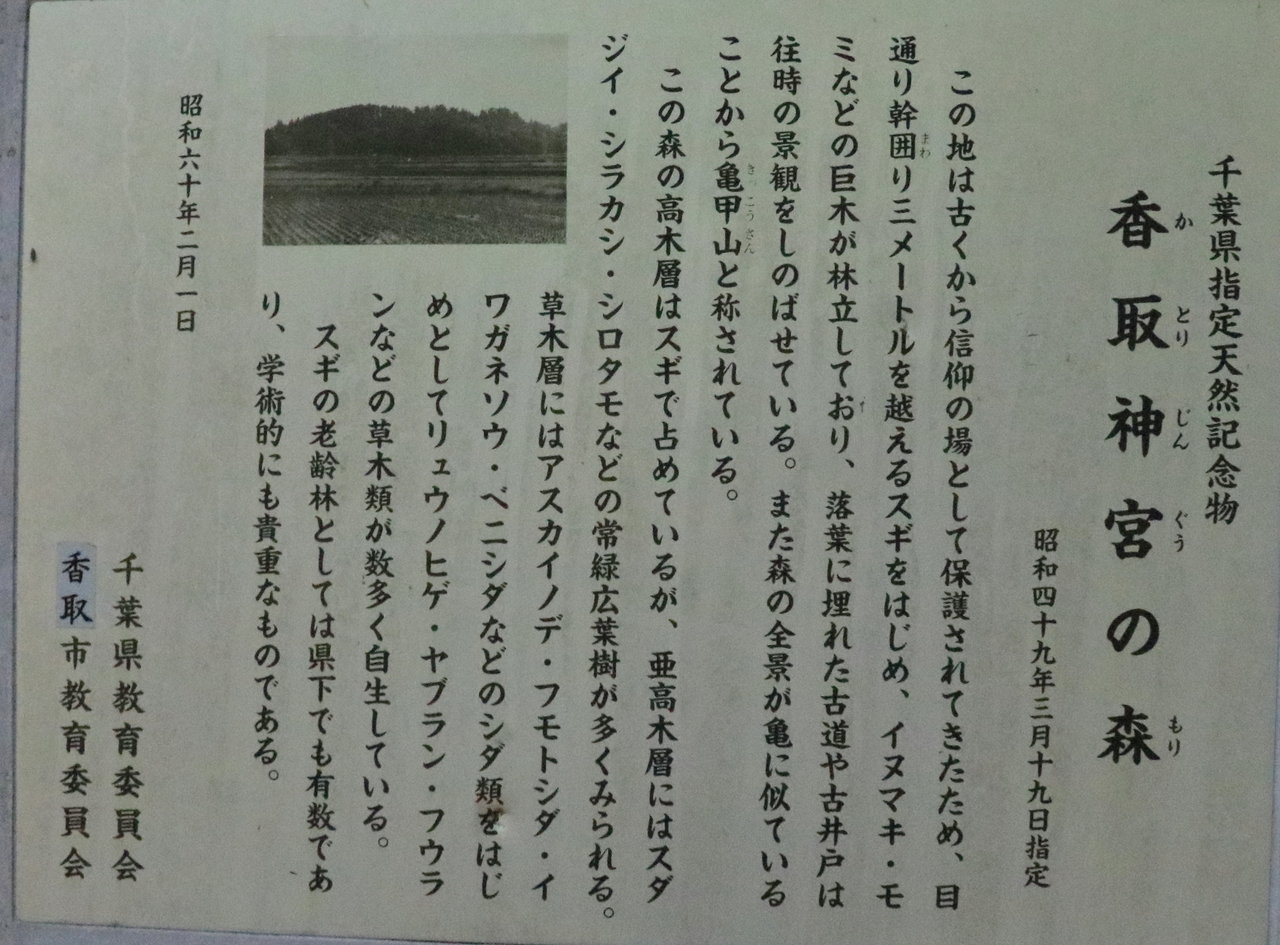 千葉県指定天然記念物
香取神宮の森
かとりじんぐうもり
昭和四十九年三月十九日指定
この地は古くから信仰の場として保護されてきたため、目
通り幹囲り三メートルを越えるスギをはじめ、イヌマキ・モ
まわ
ミなどの巨木が林立しており、落葉に埋れた古道や古井戸は
往時の景観をしのばせている。また森の全景が亀に似ている
ことから亀甲山と称されている。
きっこうさん
この森の高木層はスギで占めているが、亜高木層にはスダ
ジイ・シラカシ・シロダモなどの常緑広葉樹が多くみられる。
草木層にはアスカイノデ・フモトシダ・イ
ワガネソウ・ベニシダなどのシダ類をはじ
めとしてリュウノヒゲ・ヤブラン・フウラ
ンなどの草木類が数多く自生している。
スギの老齢林としては県下でも有数であ
り、学術的にも貴重なものである。
昭和六十年二月一日
千葉県教育委員会
香取市教育委員会